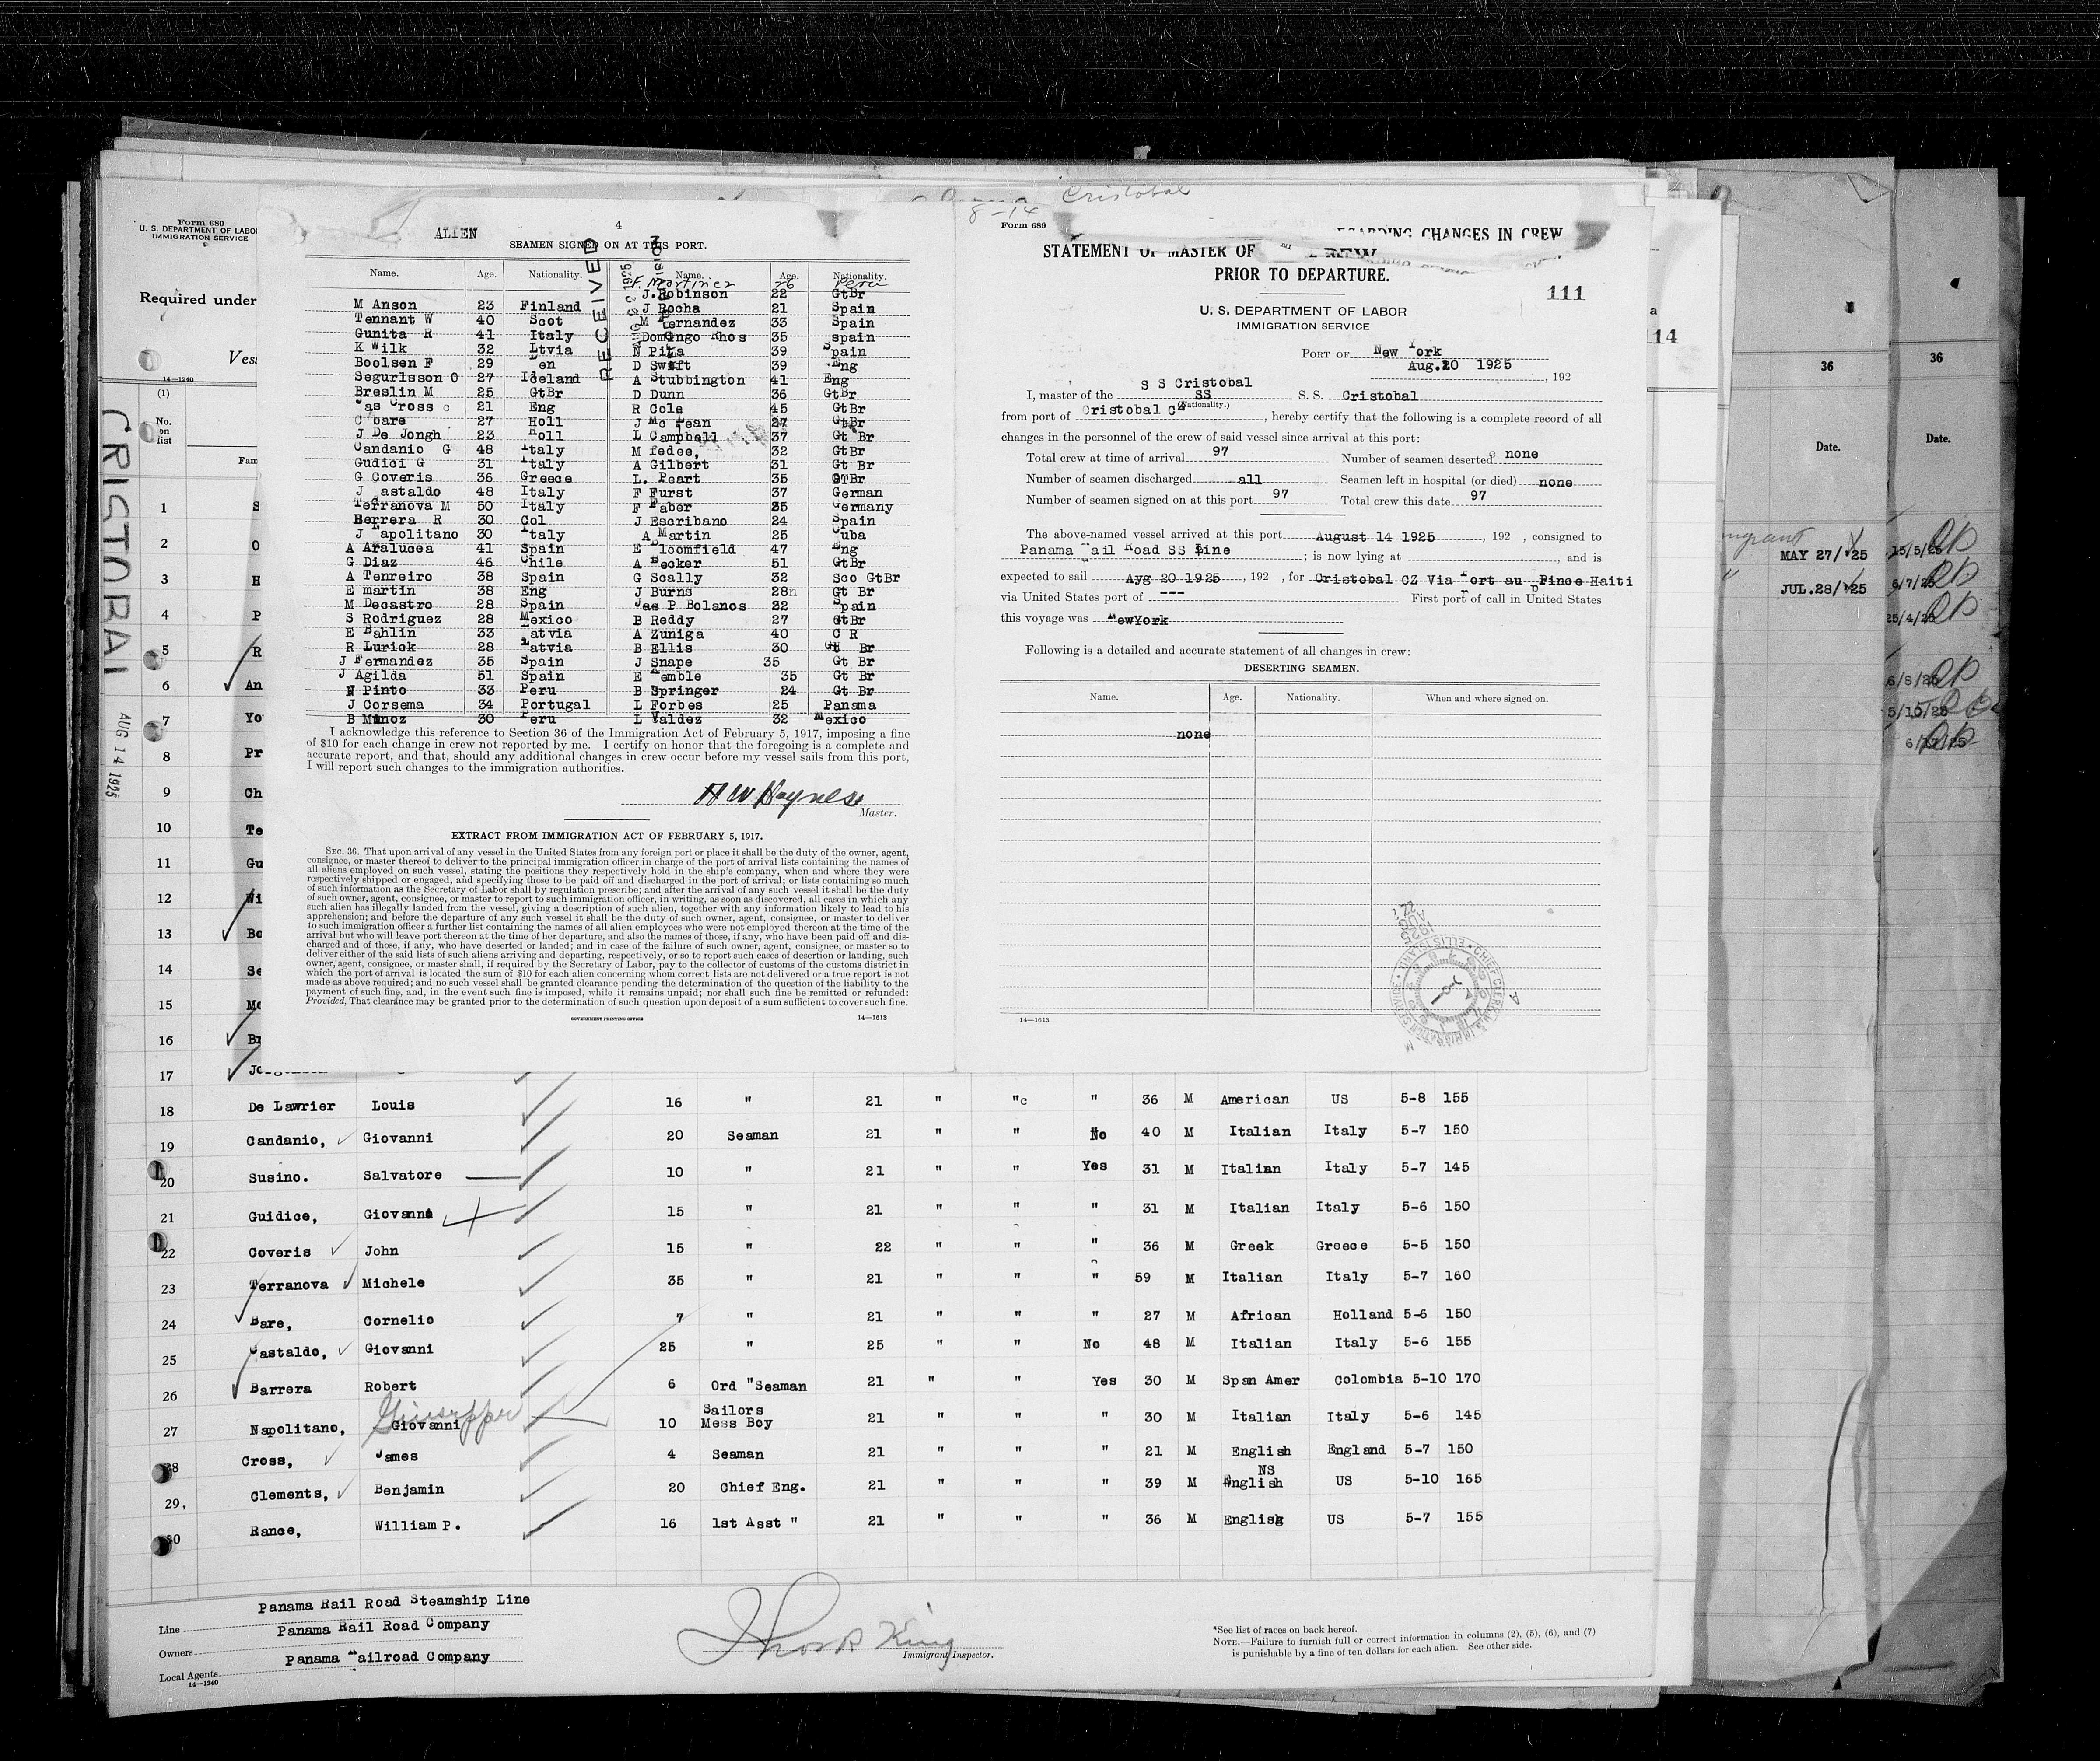 Cristobal
8-14
Form 680
U. S. DEPARTMENT OF LABOR
IMMIGRATION SERVICE
Required under
14—1240
(1)
No.
on
list
CRISTOBAL
AUG 14 1925
1
2
3
4
5
6
7
8
9
10
11
12
13
14
15
16
17
4
ALIEN
SEAMEN SIGNED ON AT THIS PORT.
RECEIVED
Name. Age. Nationality. Name. Age. Nationality.
F. Martinez 26 Peru
J. Robinson 22 GtBr
M Anson 23 Finland J Rocha 21 Spain
Tennant W 40 Scot M Fernandez 33 Spain
Gunita R 41 Italy Domingo Rhos 35 spain
K Wilk 32 Ltvia N Pita 39 Spain
Boolsen F 29 en D Swift 39 Eng
Segurlsson O 27 Iceland A Stubbington 41 Eng
Breslin M 25 GtBr D Dunn 36 GtBr
Jas Cross c 21 Eng R Cole 45 GtBr
C bare 27 Holl J Mc Lean 27 GtBr
J De Jongh 23 Holl L Campbell 37 Gt Br
Candanio G 48 Italy M fedee, 32 GtBr
Gudici G 31 Italy A Gilbert 31 Gt Br
G Coveris 36 Greece L. Peart 35 GTBr
J astaldo 48 Italy F Furst 37 German
Terranova M 50 Italy F Faber 35 Germany
Berrera R 30 Col J Escribano 24 Spain
J Napolitano 30 Italy A Martin 25 Cuba
A Aralucea 41 Spain E Bloomfield 47 Eng
G Diaz 46 Chile A Becker 51 GtBr
A Tenreiro 38 Spain G Scally 32 Sco GtBr
E martin 38 Eng J Burns 28 Gt Br
M Decastro 28 Spain Jas P Bolanos 22 Spain
S Rodriguez 28 Mexico B Reddy 27 GtBr
E Dahlin 33 Latvia A Zuniga 40 C R
R Lurick 28 Latvia B Ellis 30 Gt Br
J Fernandez 35 Spain J Snape 35 Gt Br
J Agilda 51 Spain E emble 35 Gt Br
N Pinto 33 Peru B Springer 24 Gt Br
J Corsema 34 Portugal L Forbes 25 Panama
B Munoz 30 Peru L Valdez 32 Mexico
I acknowledge this reference to Section 36 of the Immigration Act of February 5, 1917, imposing a fine
of $10 for each change in crew not reported by me. I certify on honor that the foregoing is a complete and
accurate report, and that, should any additional changes in crew occur before my vessel sails from this port,
I will report such changes to the immigration authorities.
H W Haynes
Master.
EXTRACT FROM IMMIGRATION ACT OF FEBRUARY 5, 1917.
SEC. 36. That upon arrival of any vessel in the United States from any foreign port or place it shall be the duty of the owner, agent,
consignee, or master thereof to deliver to the principal immigration officer in charge of the port of arrival lists containing the names of
all aliens employed on such vessel, stating the positions they respectively hold in the ship's company, when and where they were
respectively shipped or engaged, and specifying those to be paid off and discharged in the port of arrival; or lists containing so much
of such information as the Secretary of Labor shall by regulation prescribe; and after the arrival of any such vessel it shall be the duty
of such owner, agent, consignee, or master to report to such immigration officer, in writing, as soon as discovered, all cases in which any
such alien has illegally landed from the vessel, giving a description of such alien, together with any information likely to lead to his
apprehension; and before the departure of any such vessel it shall be the duty of such owner, agent, consignee, or master to deliver
to such immigration officer a further list containing the names of all alien employees who were not employed thereon at the time of the
arrival but who will leave port thereon at the time of her departure, and also the names of those, if any, who have been paid off and dis-
charged and of those, if any, who have deserted or landed; and in case of the failure of such owner, agent, consignee, or master so to
deliver either of the said lists of such aliens arriving and departing, respectively, or so to report such cases of desertion or landing, such
owner, agent, consignee, or master shall, if required by the Secretary of Labor, pay to the collector of customs of the customs district in
which the port of arrival is located the sum of $10 for each alien concerning whom correct lists are not delivered or a true report is not
made as above required; and no such vessel shall be granted clearance pending the determination of the question of the liability to the
payment of such fine, and, in the event such fine is imposed, while it remains unpaid; nor shall such fine be remitted or refunded:
Provided, That clearance may be granted prior to the determination of such question upon deposit of a sum sufficient to cover such fine.
GOVERNMENT PRINTING OFFICE
14—1613
Form 689
CHANGES IN CREW
STATEMENT OF MASTER OF
PRIOR TO DEPARTURE.
111
U. S. DEPARTMENT OF LABOR
IMMIGRATION SERVICE
PORT OF New York
Aug.20 1925, 192
S S Cristobal
I, master of the SS S. S. Cristobal
(Nationality.)
from port of Cristobal CZ, hereby certify that the following is a complete record of all
changes in the personnel of the crew of said vessel since arrival at this port:
Total crew at time of arrival 97 Number of seamen deserted none
Number of seamen discharged all Seamen left in hospital (or died) none
Number of seamen signed on at this port 97 Total crew this date 97
The above-named vessel arrived at this port August 14 1925, 192 , consigned to
Panama Rail Road SS Line; is now lying at , and is
expected to sail Ayg 20 1925, 192 , for Cristobal CZ Via Port au Pince Haiti
via United States port of --- First port of call in United States
this voyage was NewYork
Following is a detailed and accurate statement of all changes in crew:
DESERTING SEAMEN.
Name. Age. Nationality. When and where signed on.
none
14—1613
14
36
Date.
MAY 27/ 25
JUL.28/ 25
36
Date.
15/5/25
6/7/25
25/4/25
6/8/25
5/10/25
18 De Lawrier Louis 16 " 21 " "c " 36 M American US 5-8 155
19 Candanio, Giovanni 20 Seaman 21 " " No 40 M Italian Italy 5-7 150
20 Susino. Salvatore 10 " 21 " " Yes 31 M Italian Italy 5-7 145
21 Guidice, Giovanni 15 " 21 " " " 31 M Italian Italy 5-6 150
22 Coveris John 15 " 22 " " " 36 M Greek Greece 5-5 150
23 Terranova Michele 35 " 21 " " " 59 M Italian Italy 5-7 160
24 Bare, Cornelio 7 " 21 " " " 27 M African Holland 5-6 150
25 Castaldo, Giovanni 25 " 25 " " No 48 M Italian Italy 5-6 155
26 Barrera Robert 6 Ord "Seaman 21 " " Yes 30 M Span Amer Colombia 5-10 170
Giuseppe
27 Napolitano, Giovanni 10 Sailors Mess Boy 21 " " " 30 M Italian Italy 5-6 145
28 Cross, James 4 Seaman 21 " " " 21 M English England 5-7 150
NS
29, Clements, Benjamin 20 Chief Eng. 21 " " " 39 M English US 5-10 165
30 Rance, William P. 16 1st Asst " 21 " " " 36 M English US 5-7 155
Line Panama Rail Road Steamship Line
Owners Panama Rail Road Company
Local Agents Panama Railroad Company
14—1240
Thos R King
Immigrant Inspector.
*See list of races on back hereof.
NOTE.—Failure to furnish full or correct information in columns (2), (5), (6), and (7)
is punishable by a fine of ten dollars for each alien. See other side.